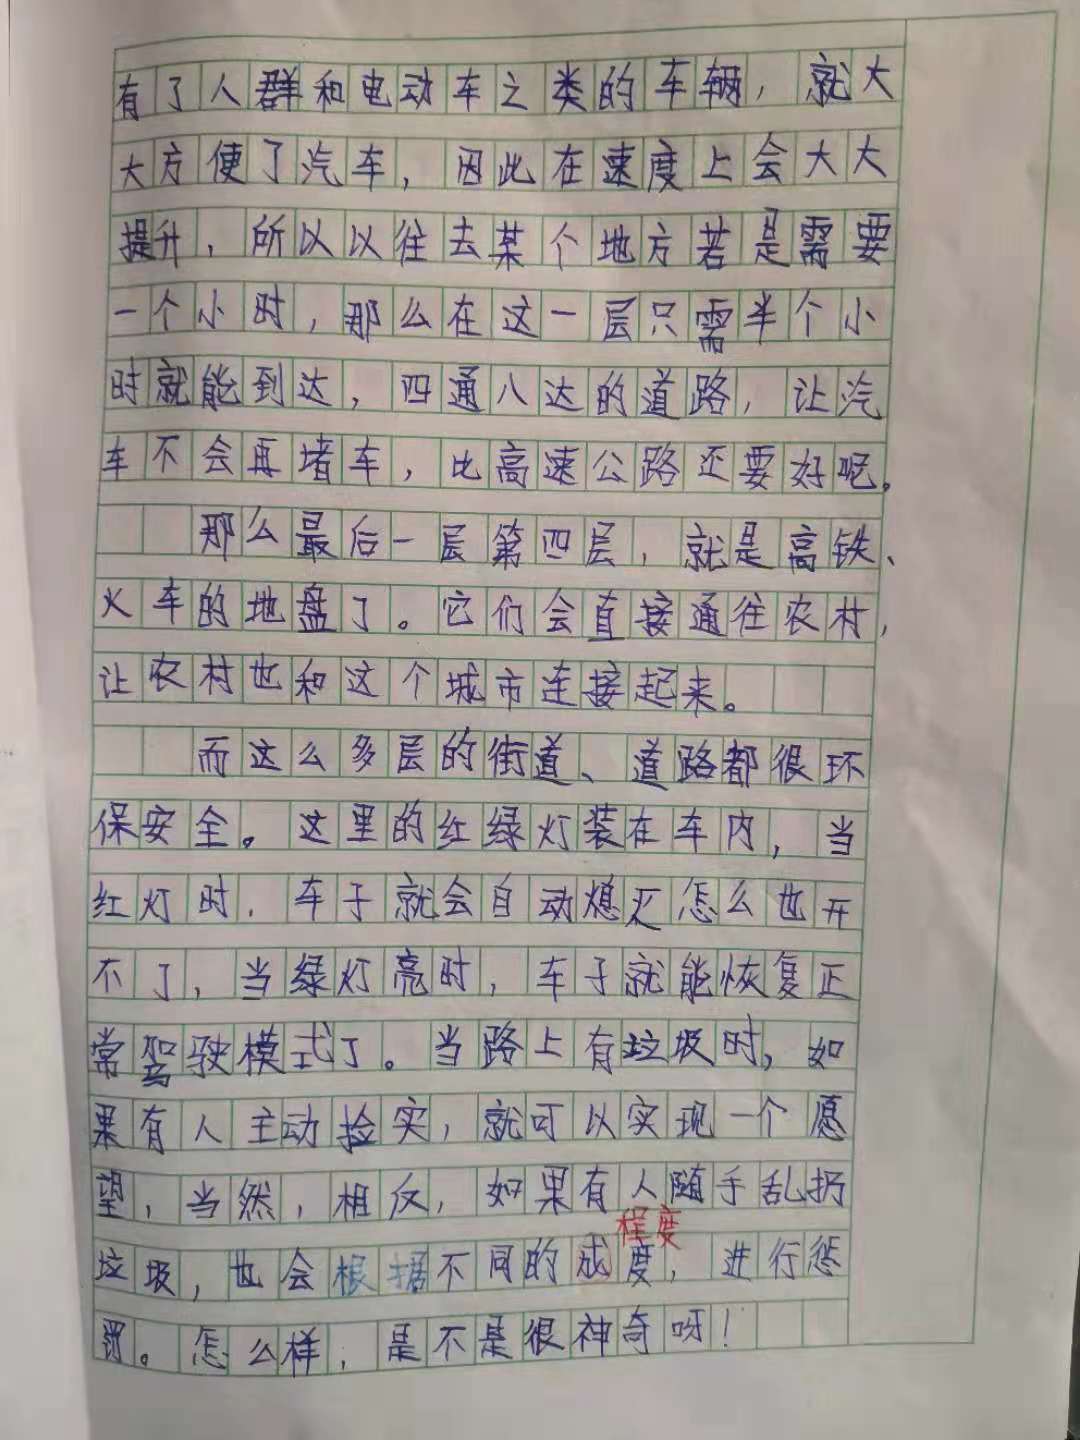 有了人群和电动车之类的车辆，就大
大方便了汽车，因此在速度上会大大
提升，所以以往去某个地方若是需要
一个小时，那么在这一层只需半个小
时就能到达，四通八达的道路，让汽
车不会再堵车，比高速公路还要好呢。
那么最后一层第四层，就是高铁、
火车的地盘了。它们会直接通往农村，
让农村也和这个城市连接起来。
而这么多层的街道、道路都很环
保安全。这里的红绿灯装在车内，当
红灯时，车子就会自动熄灭怎么也开
不了，当绿灯亮时，车子就能恢复正
常驾驶模式了。当路上有垃圾时，如
果有人主动捡实，就可以实现一个愿
望，当然，相反，如果有人随手乱扔
程度
垃圾，也会根据不同的成度，进行惩
罚。怎么样，是不是很神奇呀！